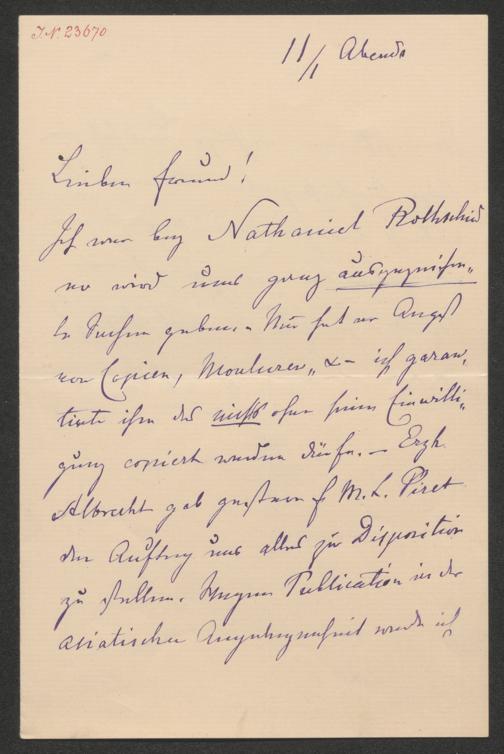 J.N. 23670
11/1 Abends
Lieber Freund!
Ich war bey Nathaniel Rothschild
er wird uns ganz ausgezeichne„
te Sachen geben. – Nur hat er Angst
von Copien, Moulures„ &– ich garan„
tirte ihm das nichts ohne seine Einwilli„
gung copiert werden dürfe. – Erzh.
Albrecht gab gestern f M. L. Piret
den Auftrag uns alles zur Disposition
zu stellen. Wegen Publication in der
asiatischen Angelegenheit werde ich